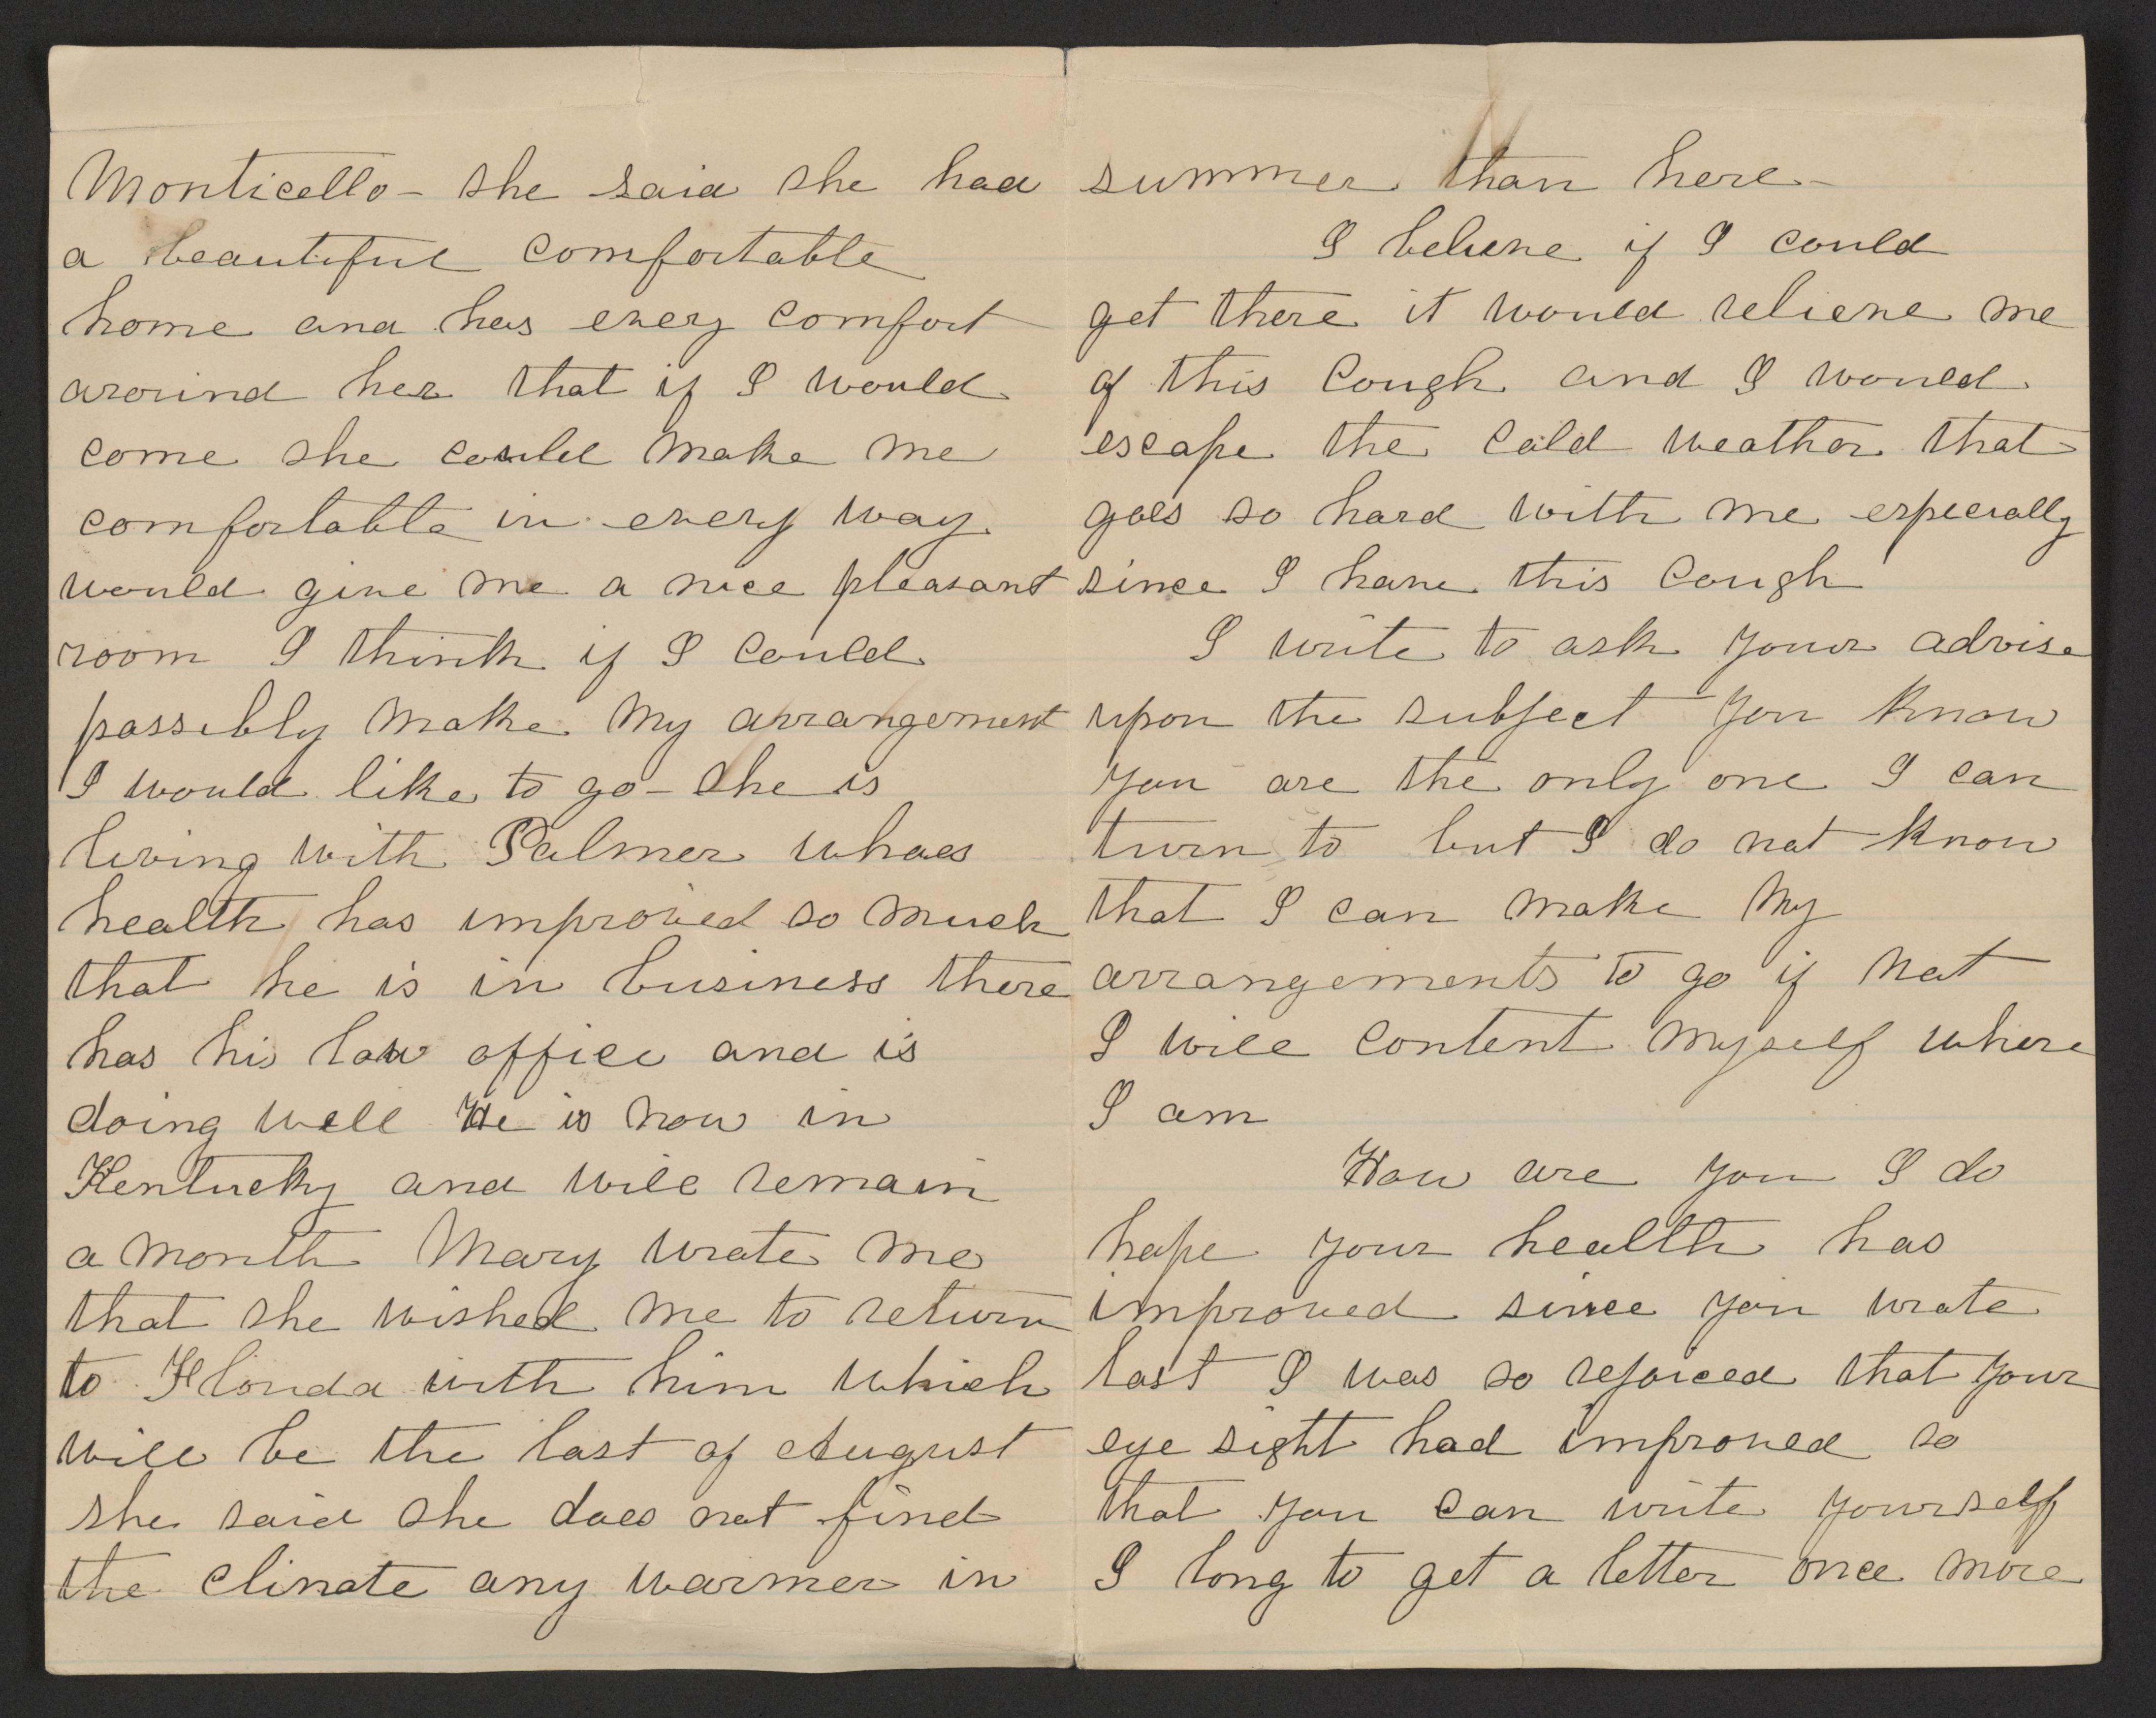 Monticello - she said she had
a beautiful comfortable
home and has every comfort
around her that if I would
come she could make me
comfortable in every way
would give me a nice pleasant
room I think if I could
possibly make my arrangement
I would like to go - She is
living with Palmer whoes
health has improved so much
that he is in business there
has his law office and is
doing well He is now in
Kentucky and will remain
a month Mary wrote me
that she wished me to return
to Florida with him which
will be the last of August
she said she does not find
the climate any warmer in
summer than here -
I believe if I could
get there it would relieve me
of this cough and I would
escape the cold weather that
goes so hard with me especially
since I have this cough
I write to ask your advise
upon the subject you know
you are the only one I can
turn to but I do not know
that I can make my
arrangements to go if not
I will content myself where
I am
How are you I do
hope your health has
improved since you wrote
last I was so rejoiced that your
eye sight had improved so
that you can write yourself
I long to get a letter once more